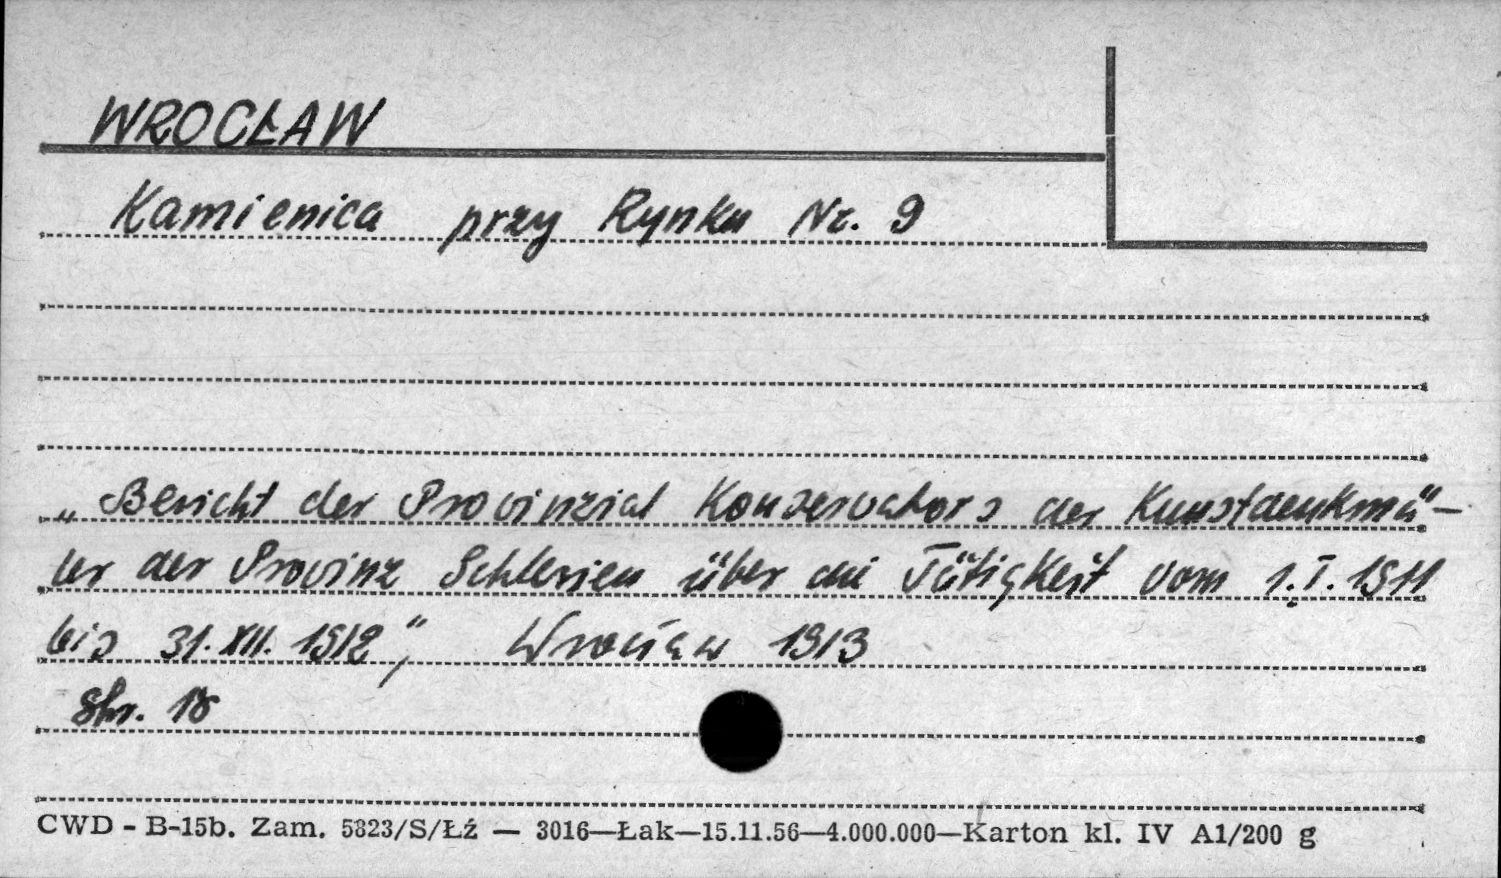 WROCŁAW
Kamienica przy Rynku Nr. 9
„Bericht der Provinzial Konservators der Kunstdenkmä-
ler der Provinz Schlesien über die Tätigkeit vom 1.I.1911
bis 31.XII.1912”, Wrocław 1913
Str. 18
CWD - B-15b. Zam. 5823/S/Łź — 3016—Łak—15.11.56—4.000.000—Karton kl. IV A1/200 g